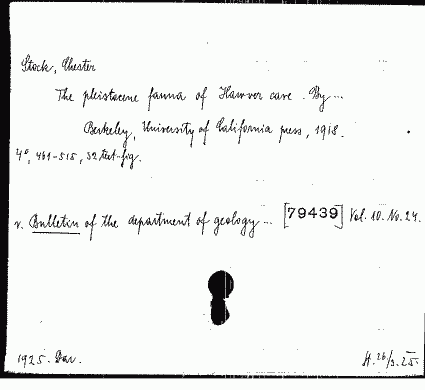 Stock, Chester
The pleistocene fauna of Hawver cave. By ...
Berkeley, University of California press, 1918.
4°, 461-515, 32 text-fig.
v. Bulletin of the department of geology ... [79439] Vol. 10. No. 24.
1925. Dav.
H. 26/3. 25.